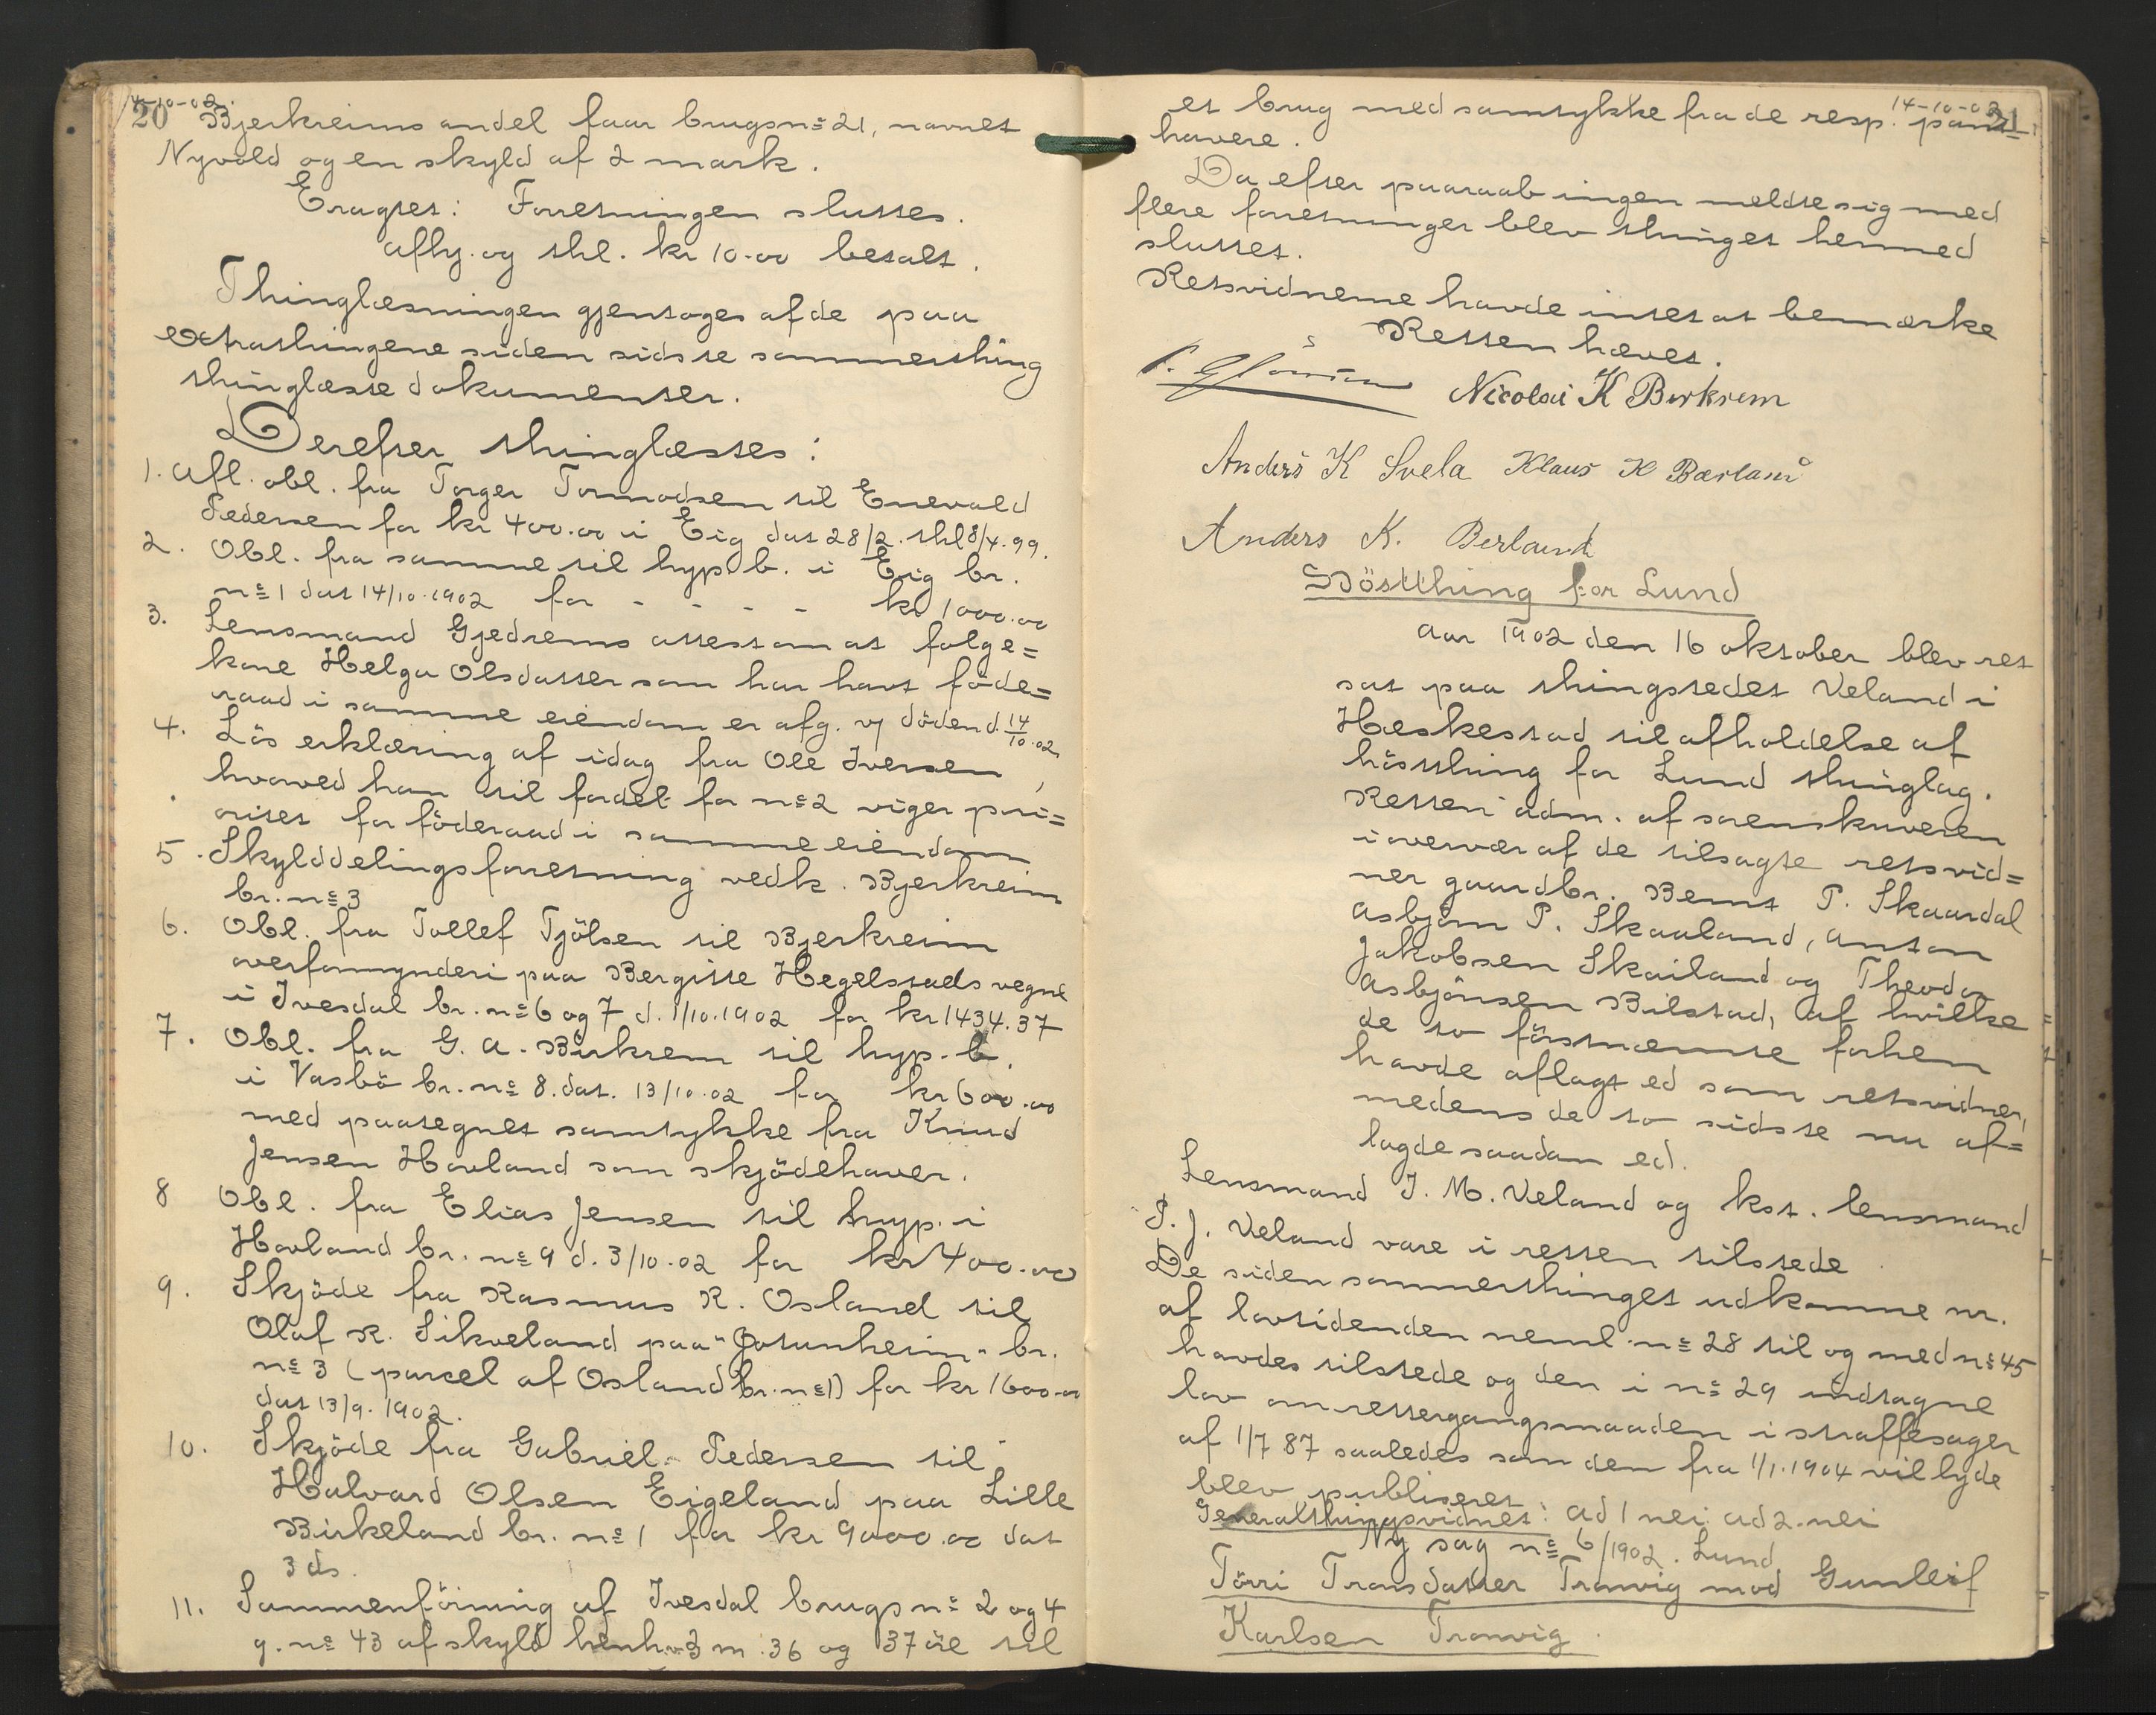 14-10-02.
20 Bjerkreims andel faar brugsnº 21, navnet
Nyvold og en skyld af 2 mark.
Eragtet: Forretningen sluttes.
afhj. og thl. kr 10.00 betalt.
Thinglæsningen gjentoges af de paa
extrathingene siden sidste sommerthing
thinglæste dokumenter.
Derefter thinglæstes:
1. Afl. obl. fra Torger Tormodsen til Enevald
Pedersen for kr 400.00 i Eig dat 28/2. thl 8/4.99.
2. Obl. fra samme til hyp. b. i Eig br.
nº 1 dat 14/10.1902 for - - - - kr 1000.00
3. Lensmand Gjedrems attest om at folge=
kone Helga Olsdatter som har havt føde=
raad i samme eiendom er afg. v/ døden d. 14/10.02
4. Løs erklæring af idag fra Ole Iversen,
hvorved han til fordel for nº 2 viger pri=
oritet for føderaad i samme eiendom
5. Skylddelingsforretning vedk. Bjerkreim
br. nº 3
6. Obl. fra Tollef Tjølsen til Bjerkreim
overformynderi paa Bergitte Hegelstads vegne
i Ivesdal br. nº 6 og 7 d. 1/10.1902 for kr 1434.37
7. Obl. fra G. A. Birkrem til hyp. b.
i Vasbö br. nº 8. dat. 13/10.02 for kr 600.00
med paategnet samtykke fra Knud
Jensen Hovland som skjødehaver.
8 Obl. fra Elias Jensen til hyp. i
Hovland br. nº 9 d. 3/10.02 for kr 400.00
9. Skjöde fra Rasmus R. Osland til
Olaf R. Sikveland paa "Jotunheim" br.
nº 3 (parcel af Osland br. nº 1) for kr 1600.00
dat 13/9. 1902.
10. Skjöde fra Gabriel Pedersen til
Halvard Olsen Eigeland paa Lille
Birkeland br. nº 1 for kr 9000.00 dat
3 ds.
11. Sammenföining af Ivesdal brugs nº 2 og 4
g. nº 43 af skyld henhv. 3 m. 36 og 37 öre til
14-10-02
21
et brug med samtykke fra de resp. pant=
havere.
Da efter paaraab ingen meldte sig med
flere forretninger blev thinget hermed
sluttet.
Retsvidnerne havde intet at bemærke
Retten hævet.
Nicolai K Birkrem
Anders K Svela Klaus K Bærland
Anders K. Berland
Höstthing for Lund
Aar 1902 den 16 oktober blev ret
sat paa thingstedet Veland i
Heskestad til afholdelse af
høstthing for Lund thinglag.
Retten adm. af sorenskriveren
i overvær af de tilsagte retsvid=
ner gaardbr. Bernt P. Skaardal
Asbjörn P. Skaaland, Anton
Jakobsen Skailand og Theodor
Asbjörnsen Bilstad, af hvilke
de to förstnævnte forhen
havde aflagt ed som retsvidner,
medens de to sidste nu af=
lagde saadan ed.
Lensmand T. M. Veland og kst. lensmand
P. J. Veland vare i retten tilstede
De siden sommerthinget udkomne nr.
af lovtidenden neml. nº 28 til og med nº 45
havdes tilstede og den i nº 29 indtagne
lov om rettergangsmaaden i straffesager
af 1/7 87 saaledes som den fra 1/1.1904 vil lyde
blev publiseret.
Generalthingsvidnet: ad 1 nei ad 2. nei
Ny sag nº 6/1902. Lund
Törri Tronsdatter Tronvig mod Gunleif
Karlsen Tronvig.